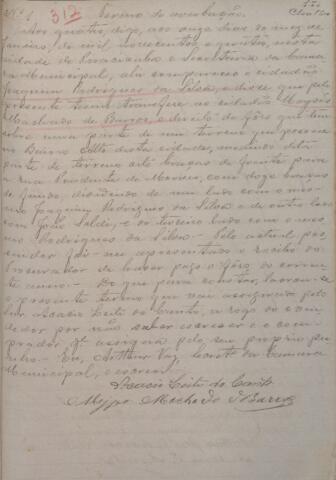 Nº 1. 312 Termo de averbação.
Aos quatro, digo, aos onze dias do mez de
Janeiro de mil novecentos e quatro, nesta
cidade de Piracicaba e Secretaria da Camara
Municipal, ahi compareceu o cidadão
Joaquim Rodrigues da Silva, e disse que pelo
presente termo transfere ao cidadão
Machado de Barros, o direito de fôro que tem
sobre uma parte de um terreno que possue
no Bairro Alto desta cidade, medindo dita
parte de terreno oito braças de frente para
a rua Prudente de Moraes, com doze braças
de fundo, dividindo de um lado com o mesmo
Joaquim Rodrigues da Silva e de outro lado
com João e do terceiro lado com o mesmo
Rodrigues da Silva. Pelo actual possuidor
foi-me apresentado o recibo da
Procuradoria de haver pago o fôro do corrente
anno. Do que para constar, lavrou-se
o presente termo que vai assignado pelo
Snr. Acacio Leite do Canto, a rogo do vendedor
por não saber escrever e o comprador
assigna pelo seu proprio punho.
Eu, Arthur Vaz, Secretº da Camara
Municipal, o escrevi.
Acacio Leite do Canto
Machado de Barros